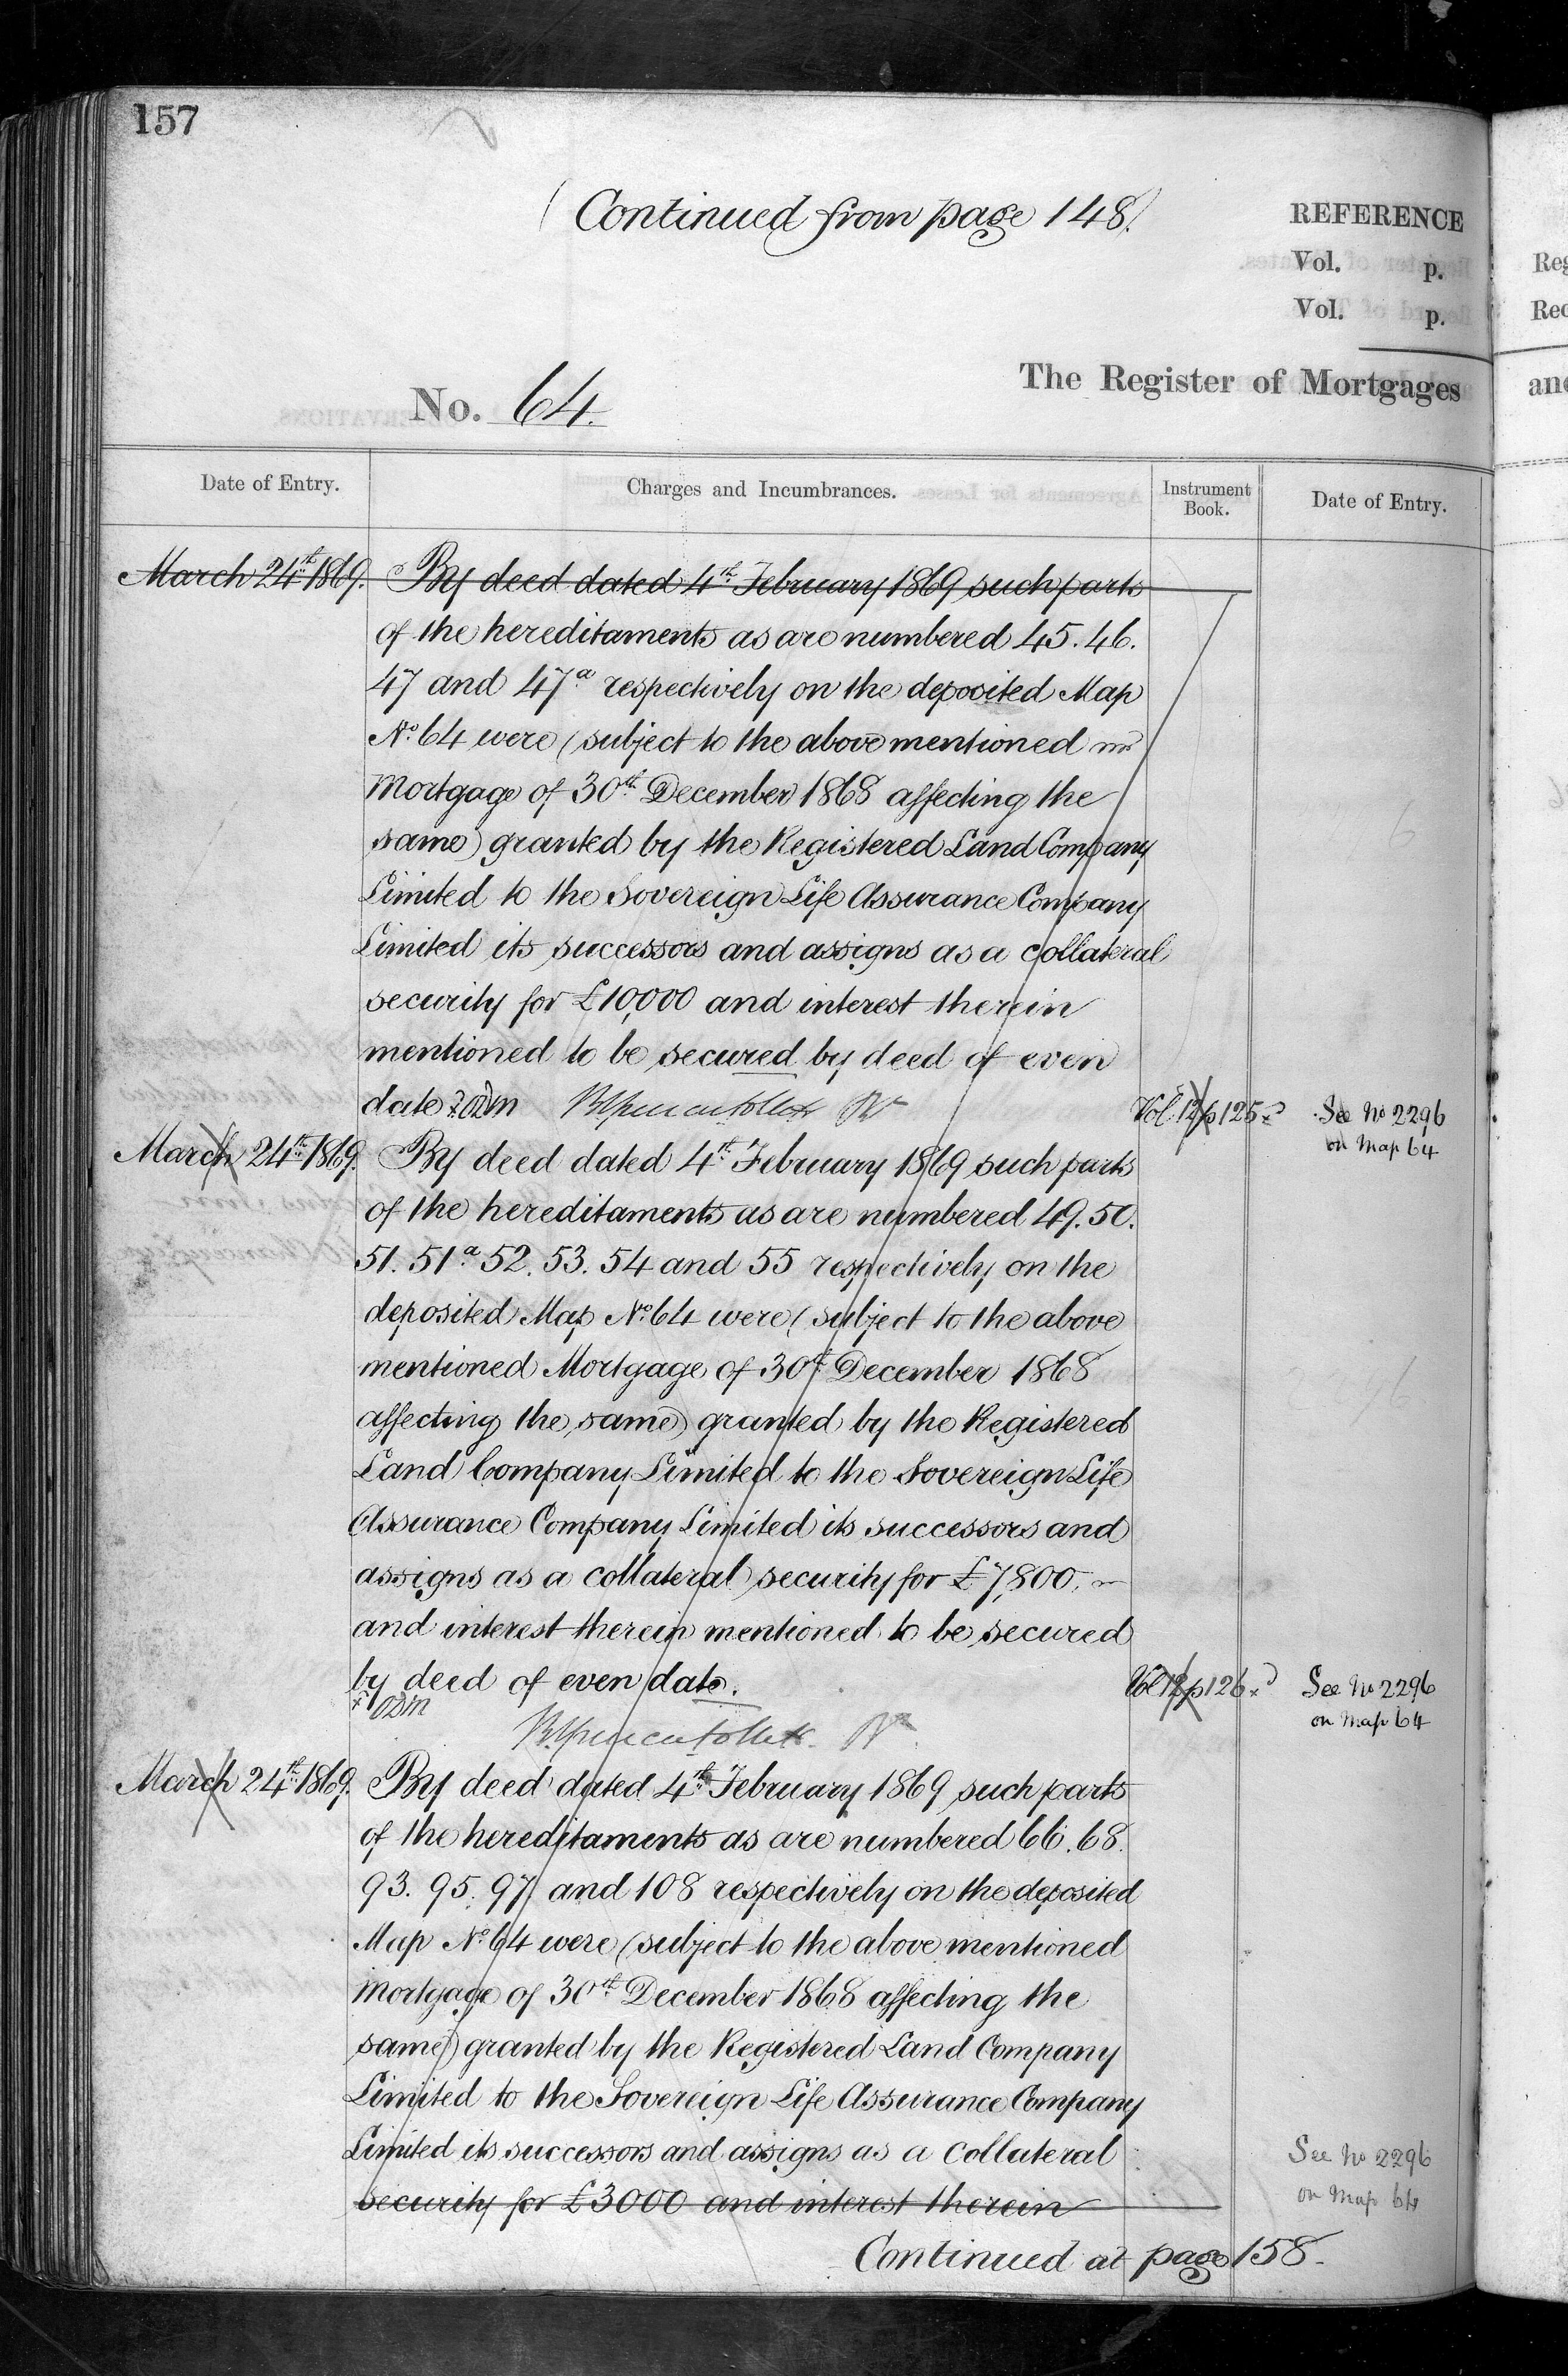 157
(Continued from page 148)
REFERENCE
Vol. p.
Vol. p.
No. 64.
The Register of Mortgages
Date of Entry.
Charges and Incumbrances.
Instrument Book.
Date of Entry.
March 24th 1869. By deed dated 4th February 1869 such parts
of the hereditaments as are numbered 45. 46.
47 and 47a respectively on the deposited Map
No. 64 were (subject to the above mentioned
Mortgage of 30th December 1868 affecting the
same) granted by the Registered Land Company
Limited to the Sovereign Life Assurance Company
Limited its successors and assigns as a collateral
security for £10,000 and interest therein
mentioned to be secured by deed of even
date Vol. 12 p 125 See No 2296
on Map 64
March 24th 1869. By deed dated 4th February 1869 such parts
of the hereditaments as are numbered 49. 50.
51. 51a 52. 53. 54 and 55 respectively on the
deposited Map No. 64 were (subject to the above
mentioned Mortgage of 30th December 1868
affecting the same) granted by the Registered
Land Company Limited to the Sovereign Life
Assurance Company Limited its successors and
assigns as a collateral security for £7,800,
and interest therein mentioned to be secured
by deed of even date. Vol 12 p 126 See No 2296
on Map 64
March 24th 1869. By deed dated 4th February 1869 such parts
of the hereditaments as are numbered 66. 68.
93. 95. 97 and 108 respectively on the deposited
Map No. 64 were (subject to the above mentioned
Mortgage of 30th December 1868 affecting the
same) granted by the Registered Land Company
Limited to the Sovereign Life Assurance Company
Limited its successors and assigns as a collateral
See No 2296
on Map 64
security for £3000 and interest therein
Continued at page 158.
Reg
Rec
and